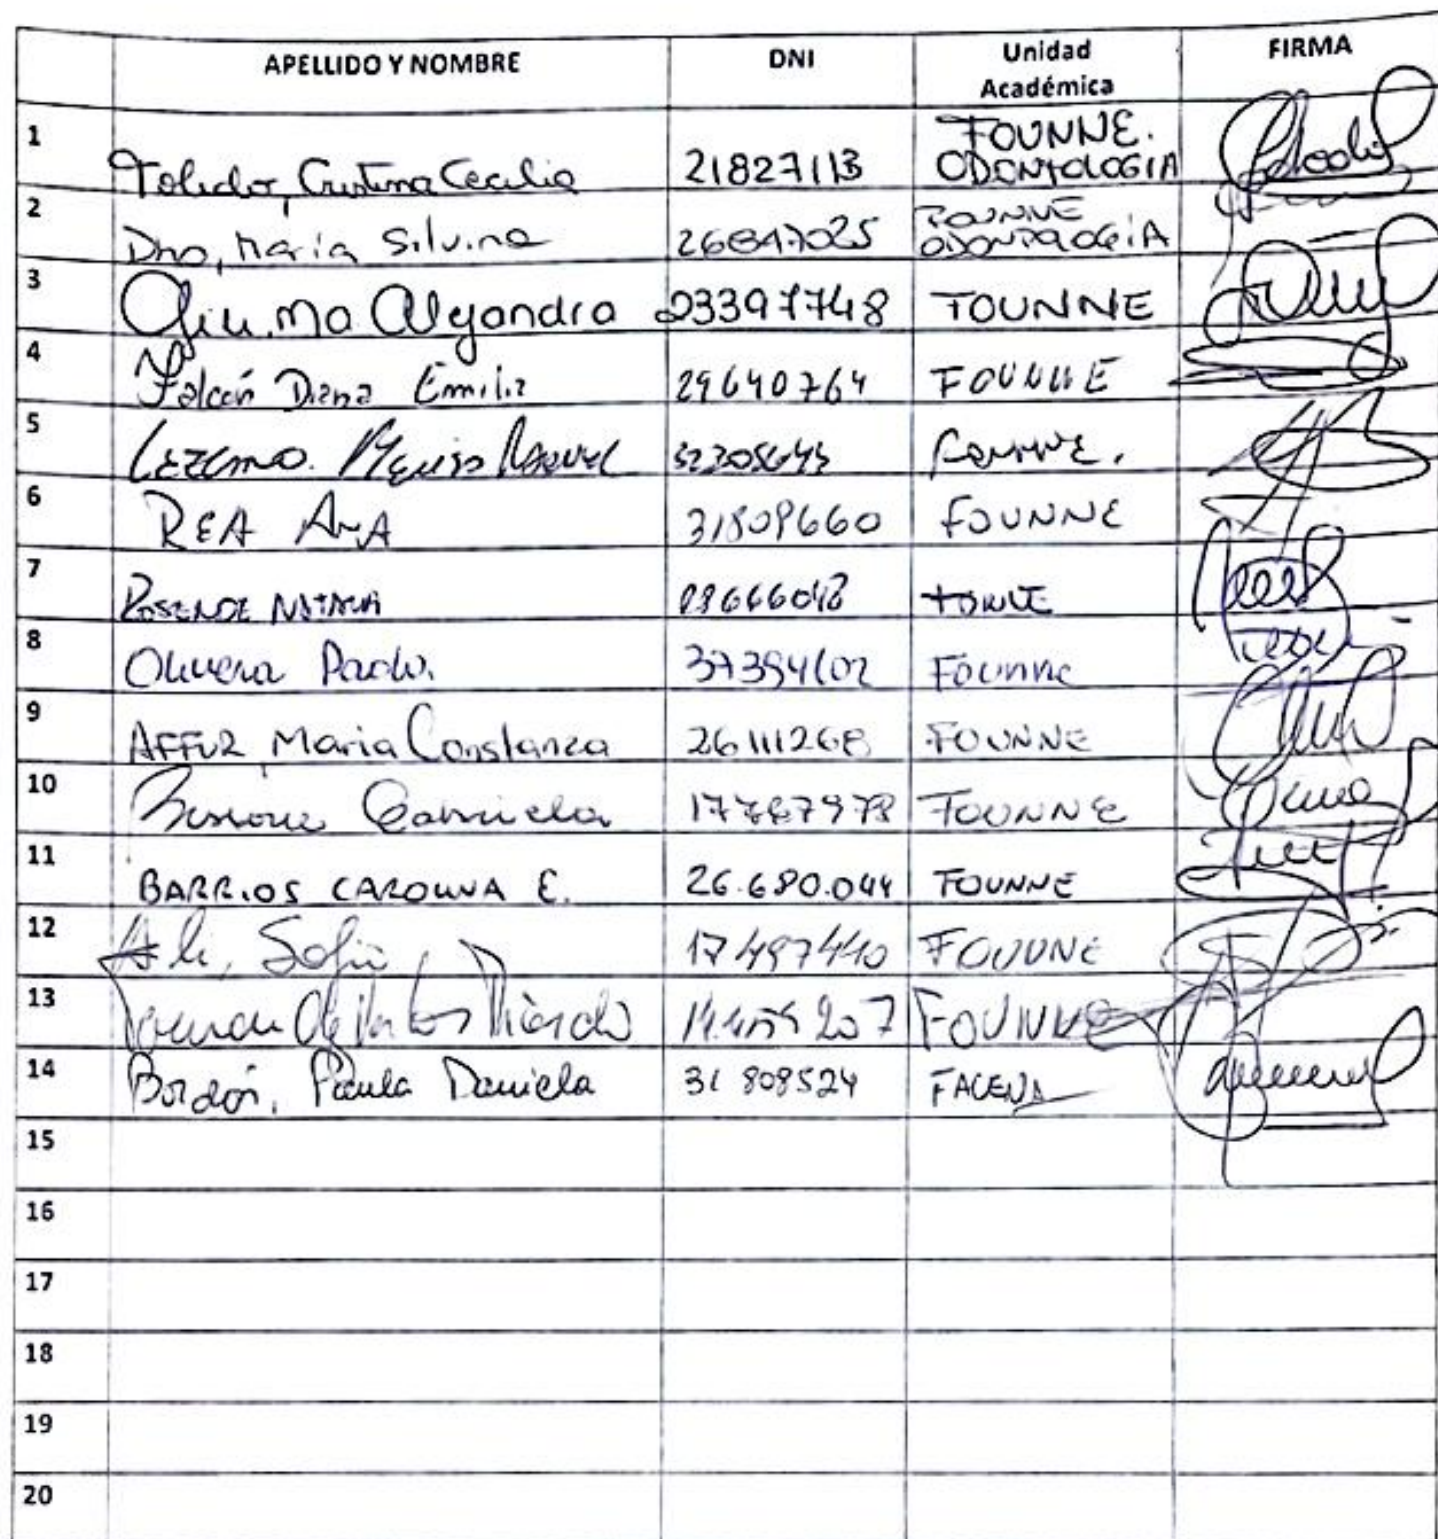 APELLIDO Y NOMBRE DNI Unidad Académica FIRMA
1 Toledo, Cristina Cecilia 21827113 FOUNNE. ODONTOLOGIA
2 Dho, María Silvina 26847025 FOUNNE ODONTOLOGÍA
3 Ma Alejandra 23397748 FOUNNE
4 Falcón Diana Emilia 29640764 FOUNNE
5 Lezcano. FOUNNE.
6 REA ANA 31809660 FOUNNE
7 ROSENDE NATALIA
8 Olivera Paola. FOUNNE
9 AFFUR, Maria Constanza 26111268 FOUNNE
10 Gabriela FOUNNE
11 BARRIOS CAROLINA E. 26.680.044 FOUNNE
12 Ali, Sofía 17497440 FOUNNE
13 FOUNNE
14 Bordón, Paula Daniela 31808524 FACENA
15
16
17
18
19
20